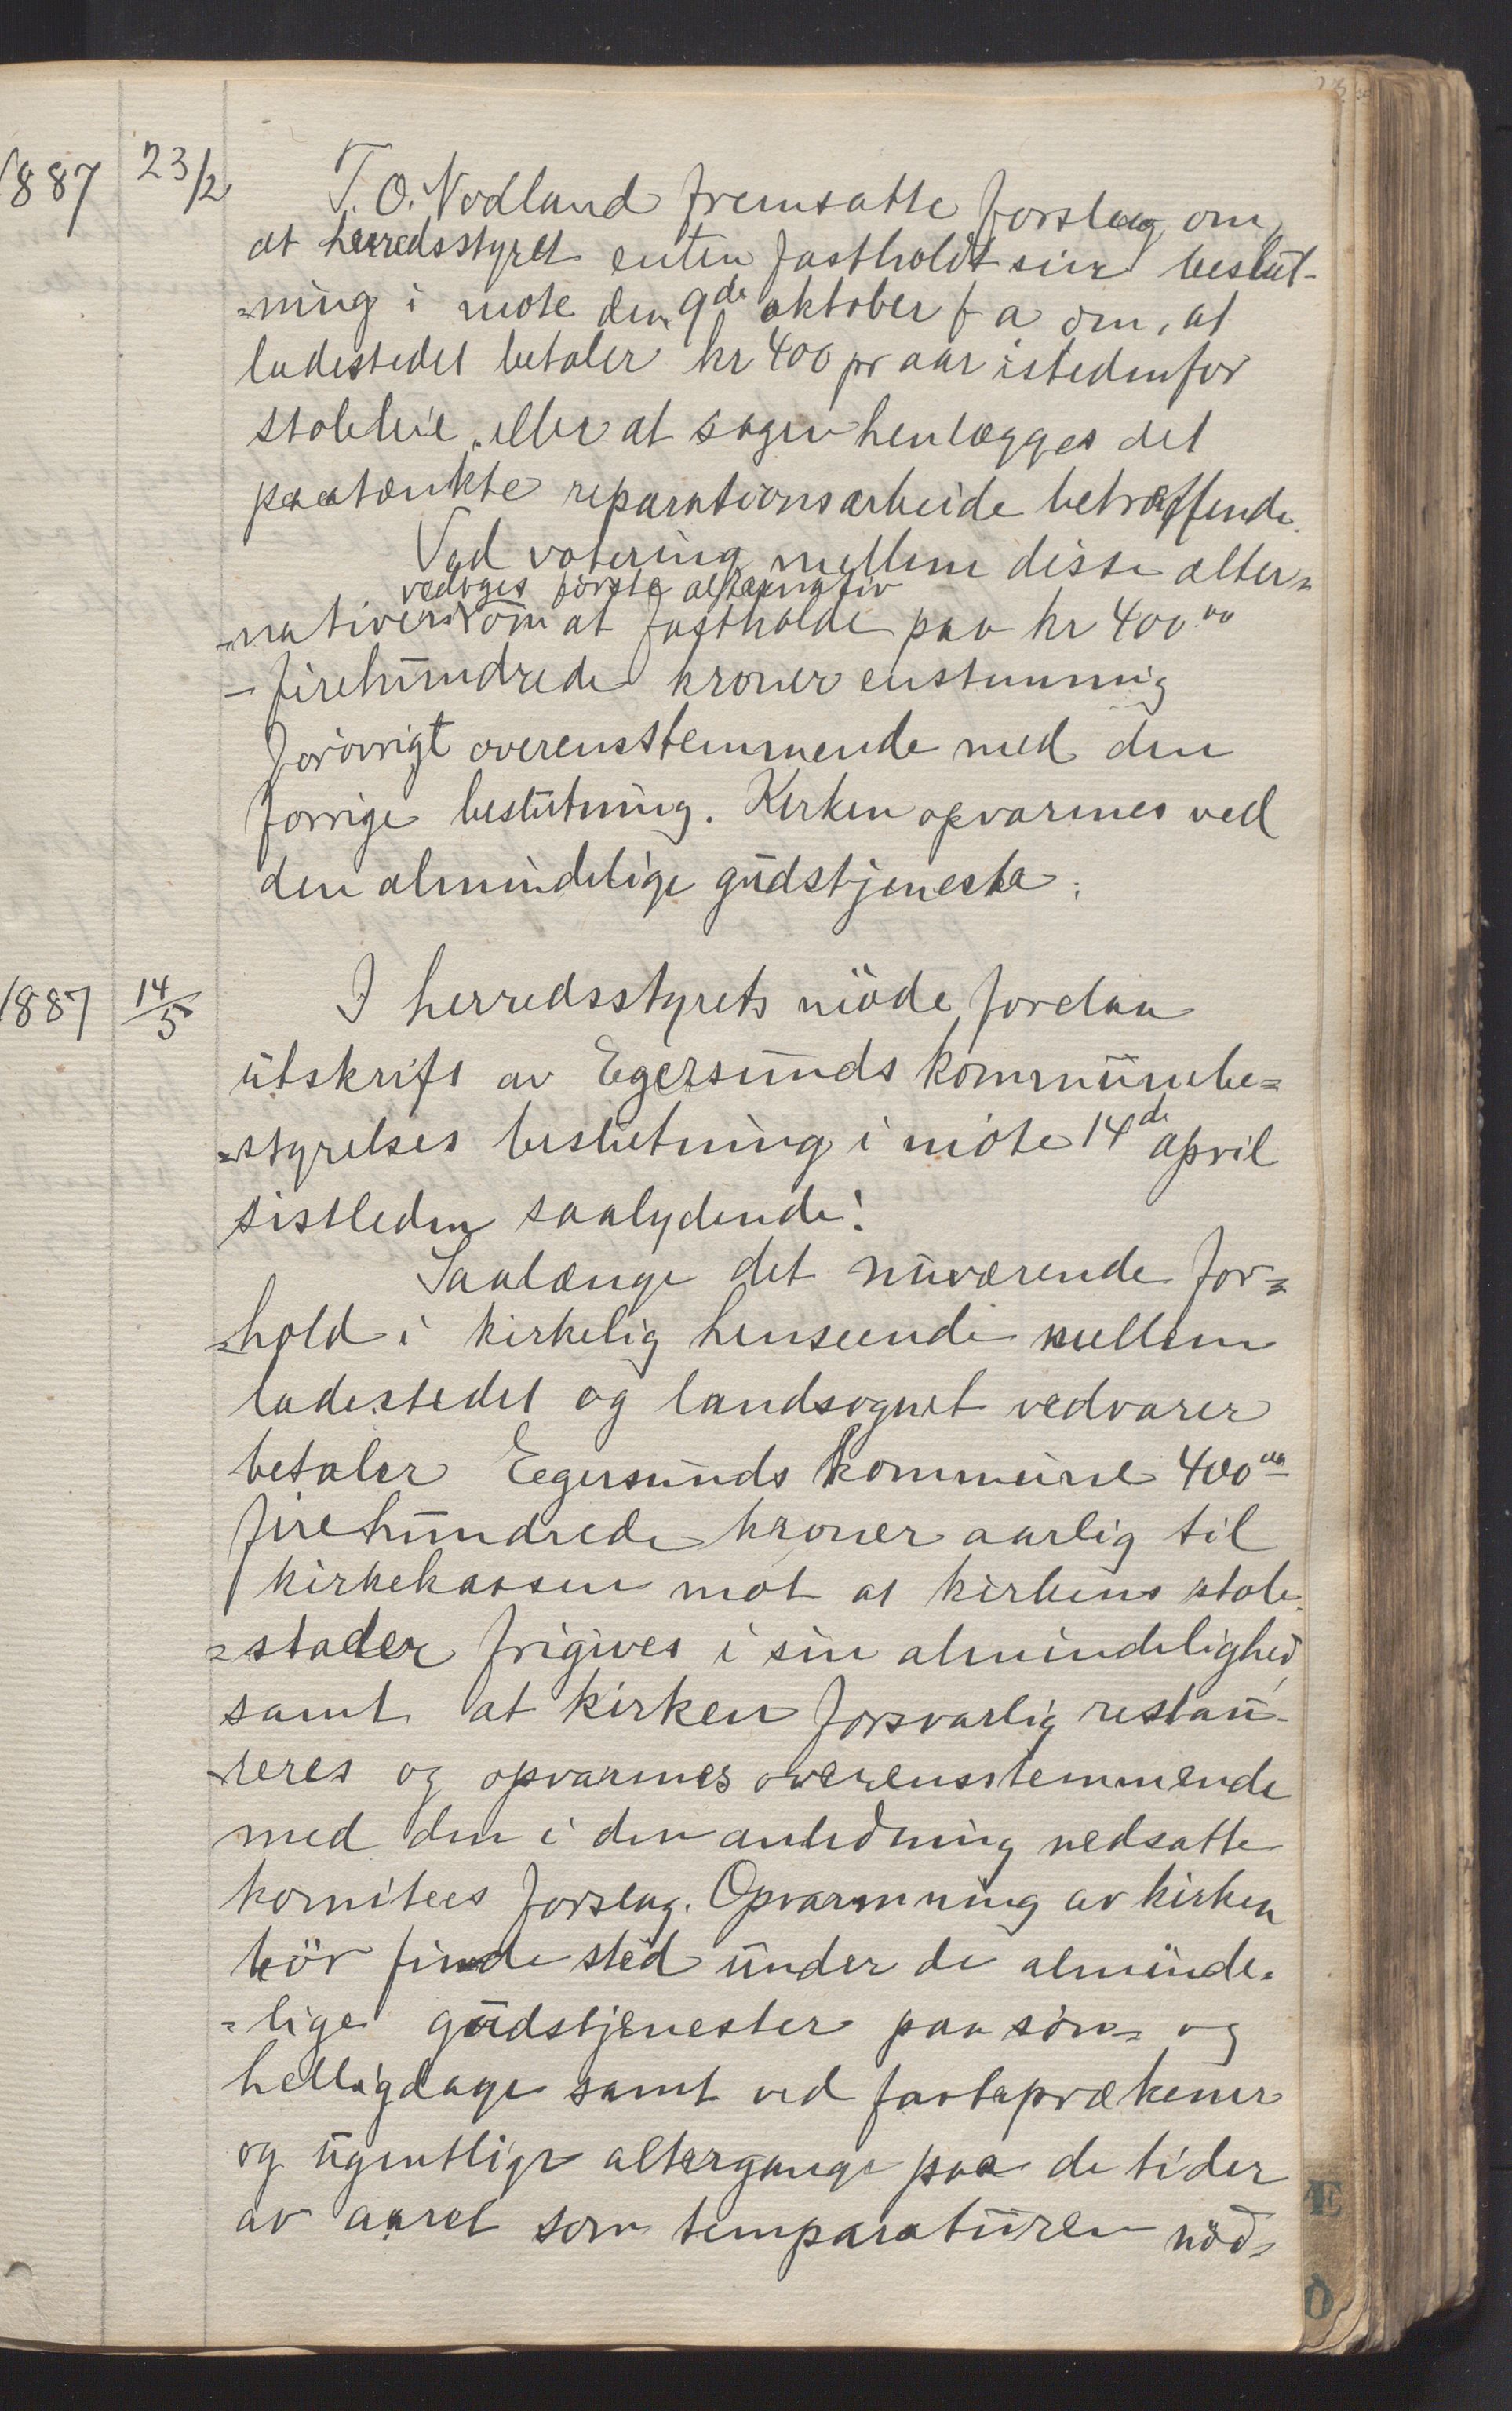 1887 23/2 T. O. Nodland fremsatte forslag om,
at herredsstyret enten fastholdt sin beslut-
=ning i møte den 9de oktober f a om, at
ladestedet betaler kr 400 pr aar istedenfor
stoleleie, eller at sagen henlægges det
paatænkte reparationsarbeide betræffende.
Ved votering mellem disse alter=
vedtoges første alternativ
=nativer om at fastholde paa kr 400 00
- firehundrede kroner enstemmig
forøvrigt overensstemmende med den
forrige beslutning. Kirken opvarmes ved
den almindelige gudstjeneste.
1887 14/5 I herredsstyrets møde forelaa
utskrift av Egersunds kommunebe=
=styrelses beslutning i møte 14de april
sistleden saalydende:
Saalænge det nuværende for=
=hold i kirkelig henseende mellem
ladestedet og landsognet vedvarer
betaler Egersunds kommune 400 00
firehundrede kroner aarlig til
kirkekassen mot at kirkens stole
=stader frigives i sin almindelighed
samt at kirken forsvarlig restau-
-reres og opvarmes overensstemmende
med den i den anledning nedsatte
komitees forslag. Opvarmning av kirken
bør finde sted under de alminde=
=lige gudstjenester paa søn= og
helligdage samt ved fasteprækener
og ugentlige altergange paa de tider
av aaret som temparaturen nød=
Æ
Ø